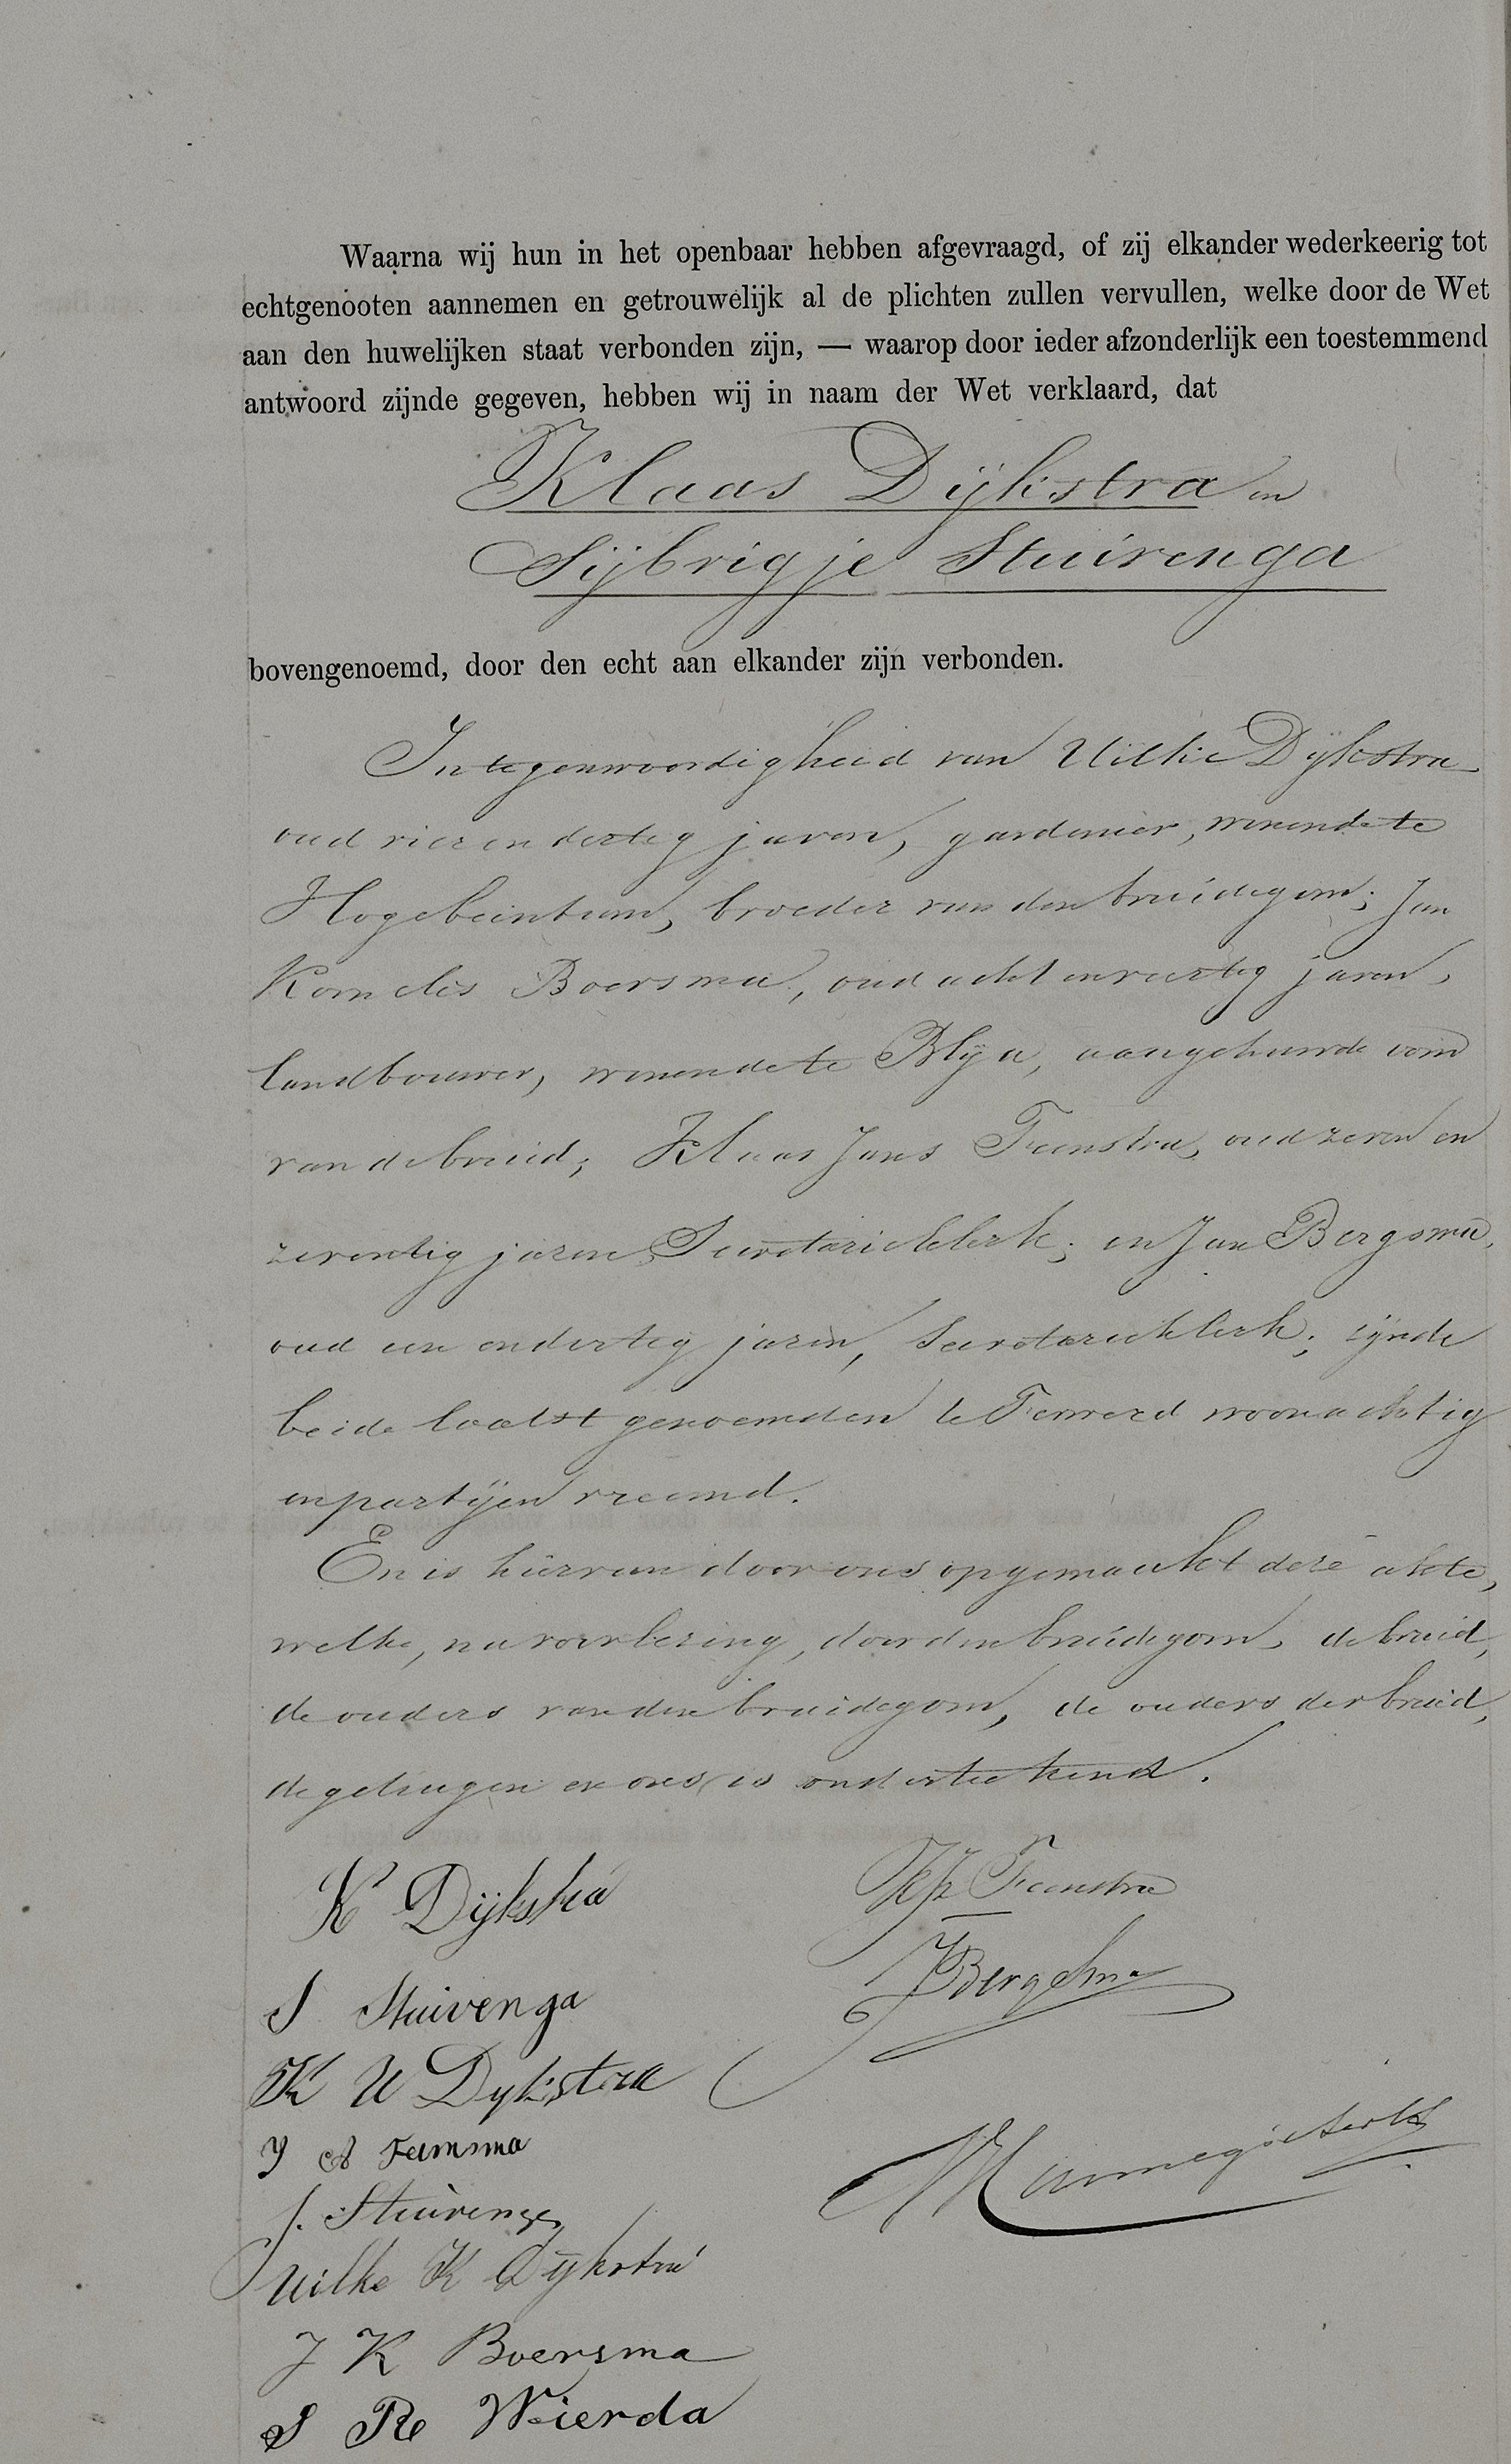 Waarna wij hun in het openbaar hebben afgevraagd, of zij elkander wederkeerig tot
echtgenooten aannemen en getrouwelijk al de plichten zullen vervullen, welke door de Wet
aan den huwelijken staat verbonden zijn, — waarop door ieder afzonderlijk een toestemmend
antwoord zijnde gegeven, hebben wij in naam der Wet verklaard, dat
Klaas Dijkstra en
Sijbrigje Stuivenga
bovengenoemd, door den echt aan elkander zijn verbonden.
In tegenwoordigheid van Uilke Dijkstra
oud vier en dertig jaren, gardenier, wonende te
Hogebeintum, broeder van den bruidegom; Jan
Kornelis Boersma, oud acht en veertig jaren,
landbouwer, wonende te Blija, aangehuwde oom
van de bruid; Klaas Jans Feenstra, oud zeven en
zeventig jaren, Secretarieklerk; en Jan Bergsma,
oud een en dertig jaren, Secretarieklerk; zijnde
beide laatst genoemden te Ferwerd woonachtig
en partijen vreemd.
En is hiervan door ons opgemaakt deze akte,
welke, na voorlezing, door den bruidegom, de bruid,
de ouders van den bruidegom, de ouders der bruid,
de getuigen en ons is onderteekend.
K Dijkstra
S Stuivenga
K U Dykstra
Y A Feinsma
J. Stuivenga
Uilke K Dijkstra
J K Boersma
S Re Wierda
KJz Feenstra
JBergsma